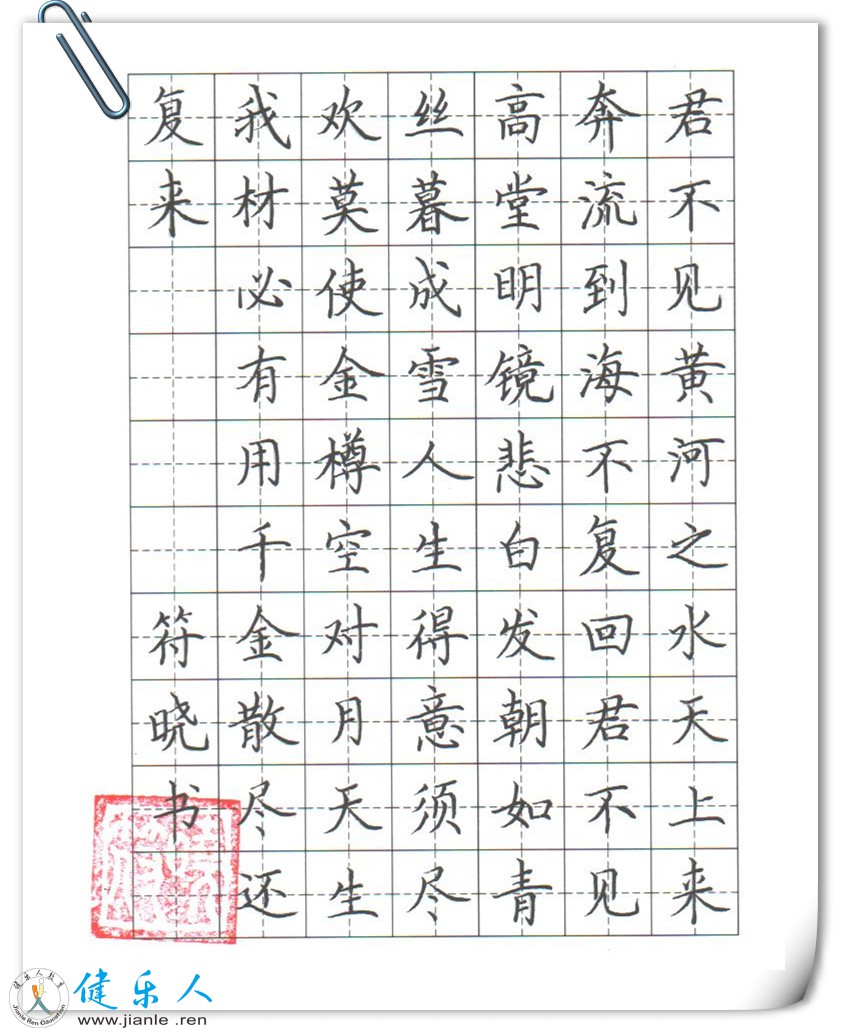 君不见黄河之水天上来
奔流到海不复回君不见
高堂明镜悲白发朝如青
丝暮成雪人生得意须尽
欢莫使金樽空对月天生
我材必有用千金散尽还
复来
符晓书
健乐人
www.jianle .ren
健乐人教育
Jianle Ren Education